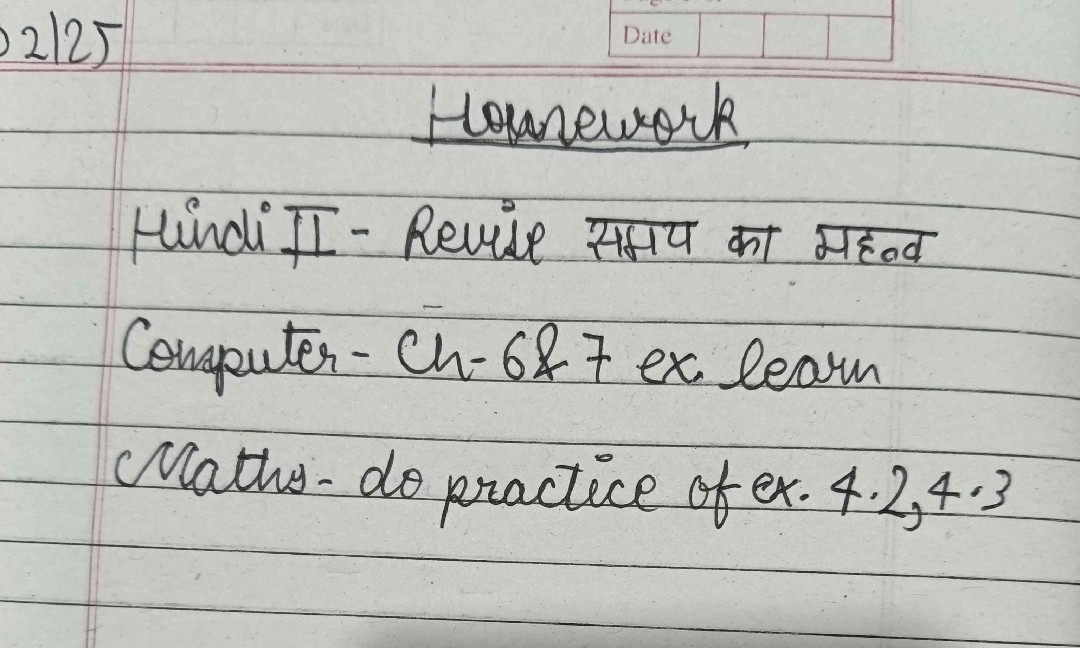 02/25
Date
Homework
Hindi II - Revise समय का महत्व
Computer - Ch - 6 & 7 ex. learn
Maths - do practice of ex. 4.2, 4.3